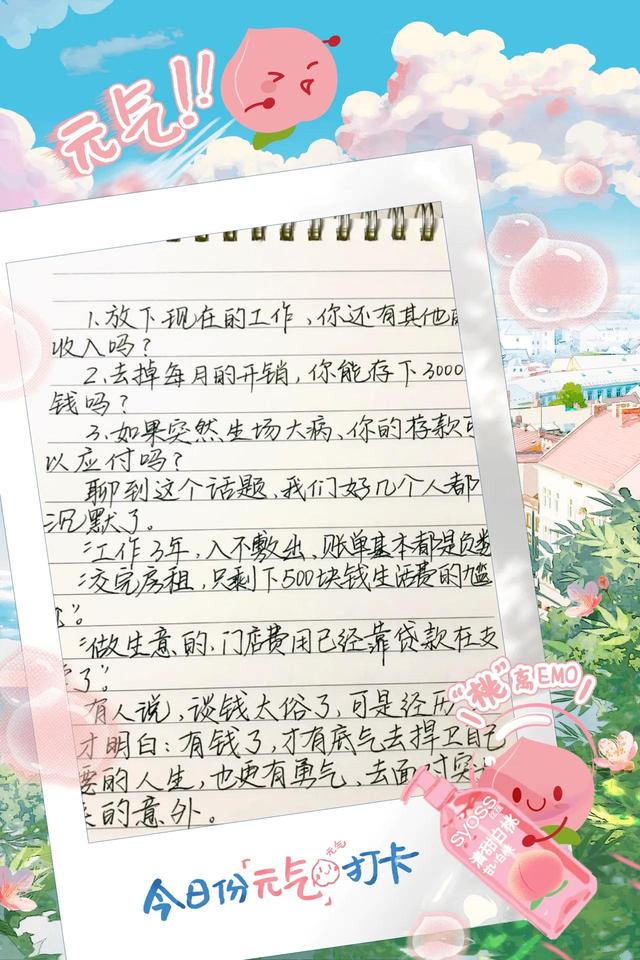 元气!!
1.放下现在的工作，你还有其他
收入吗？
2.去掉每月的开销，你能存下3000
钱吗？
3.如果突然生场大病、你的存款可
以应付吗？
聊到这个话题、我们好几个人都
沉默了。
“工作3年，入不敷出、账单基本都是负
“交完房租，只剩下500块钱生活费的尴
”。
“做生意的、门店费用已经靠贷款在支
了”。
有人说，谈钱太俗了，可是经历
才明白：有钱了，才有底气去捍卫自己
要的人生，也更有勇气、去面对突
的意外。
“桃”离EMO
SYOSS
清甜白桃
今日份“元气元气”打卡